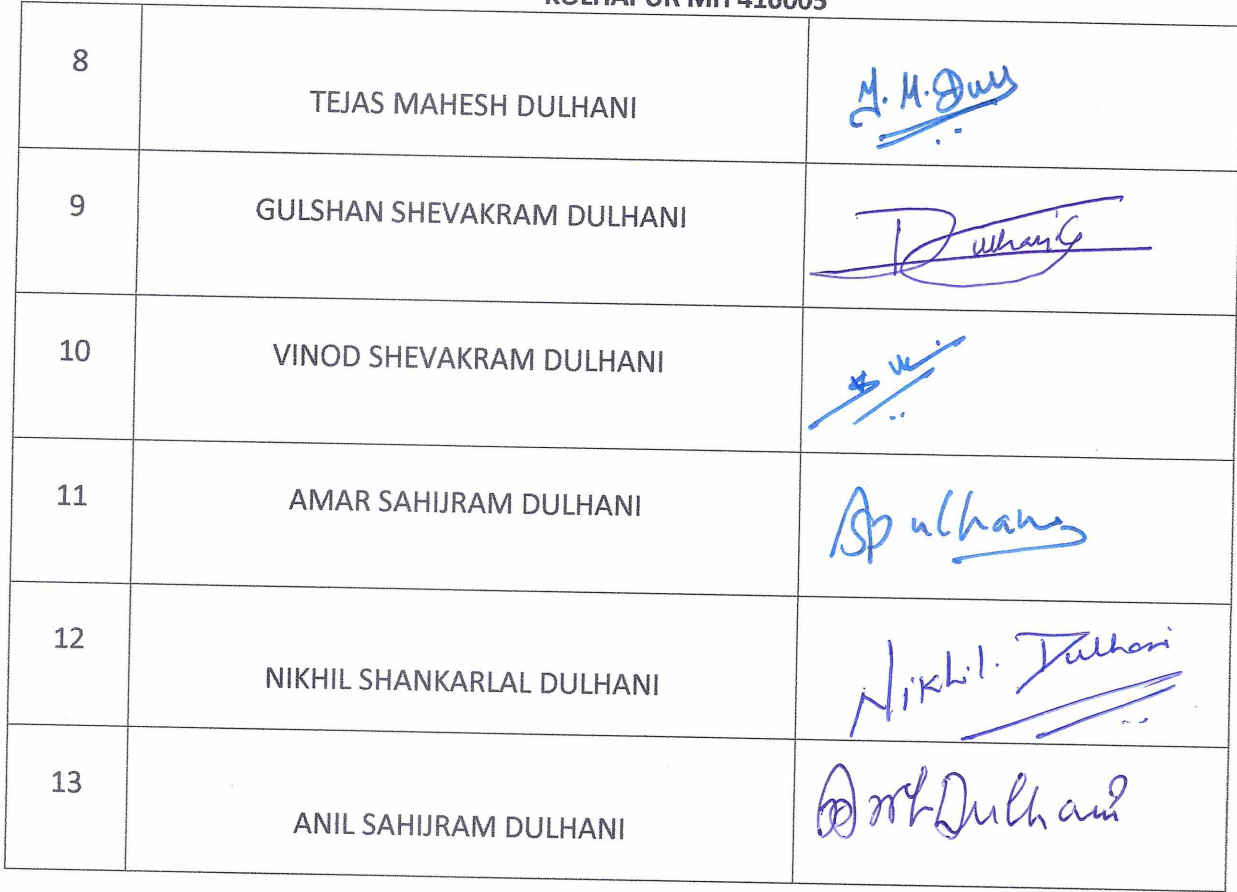 KOLHAPUR MH 416005
8
TEJAS MAHESH DULHANI
9
GULSHAN SHEVAKRAM DULHANI
10
VINOD SHEVAKRAM DULHANI
11
AMAR SAHIJRAM DULHANI
12
NIKHIL SHANKARLAL DULHANI
Nikhil. Dulhani
13
ANIL SAHIJRAM DULHANI